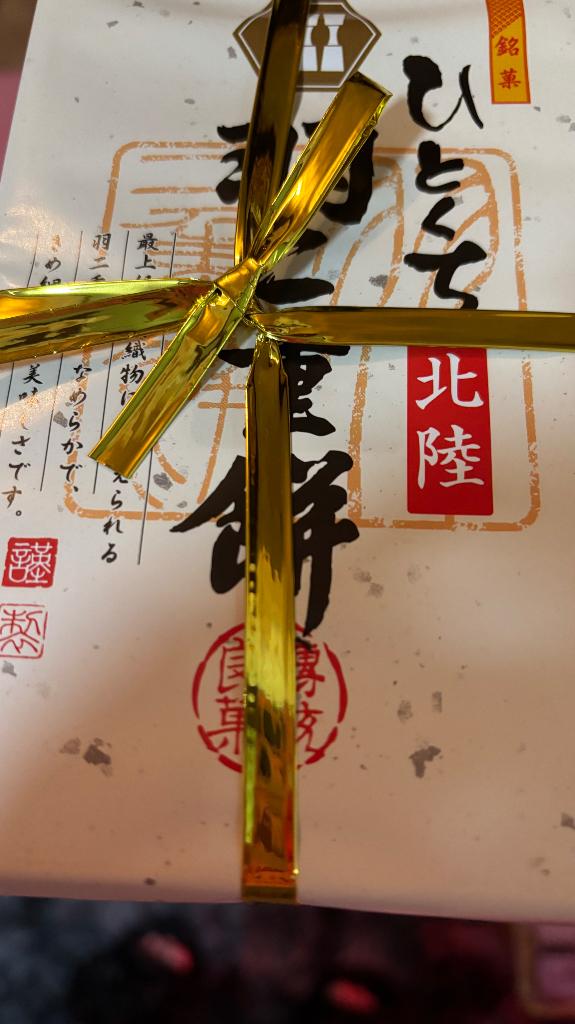 銘菓
ひとくち
北陸
羽二重餅
最上 織物に えられる
羽二 なめらかで、
きめ 美味しさです。
謹製
良菓